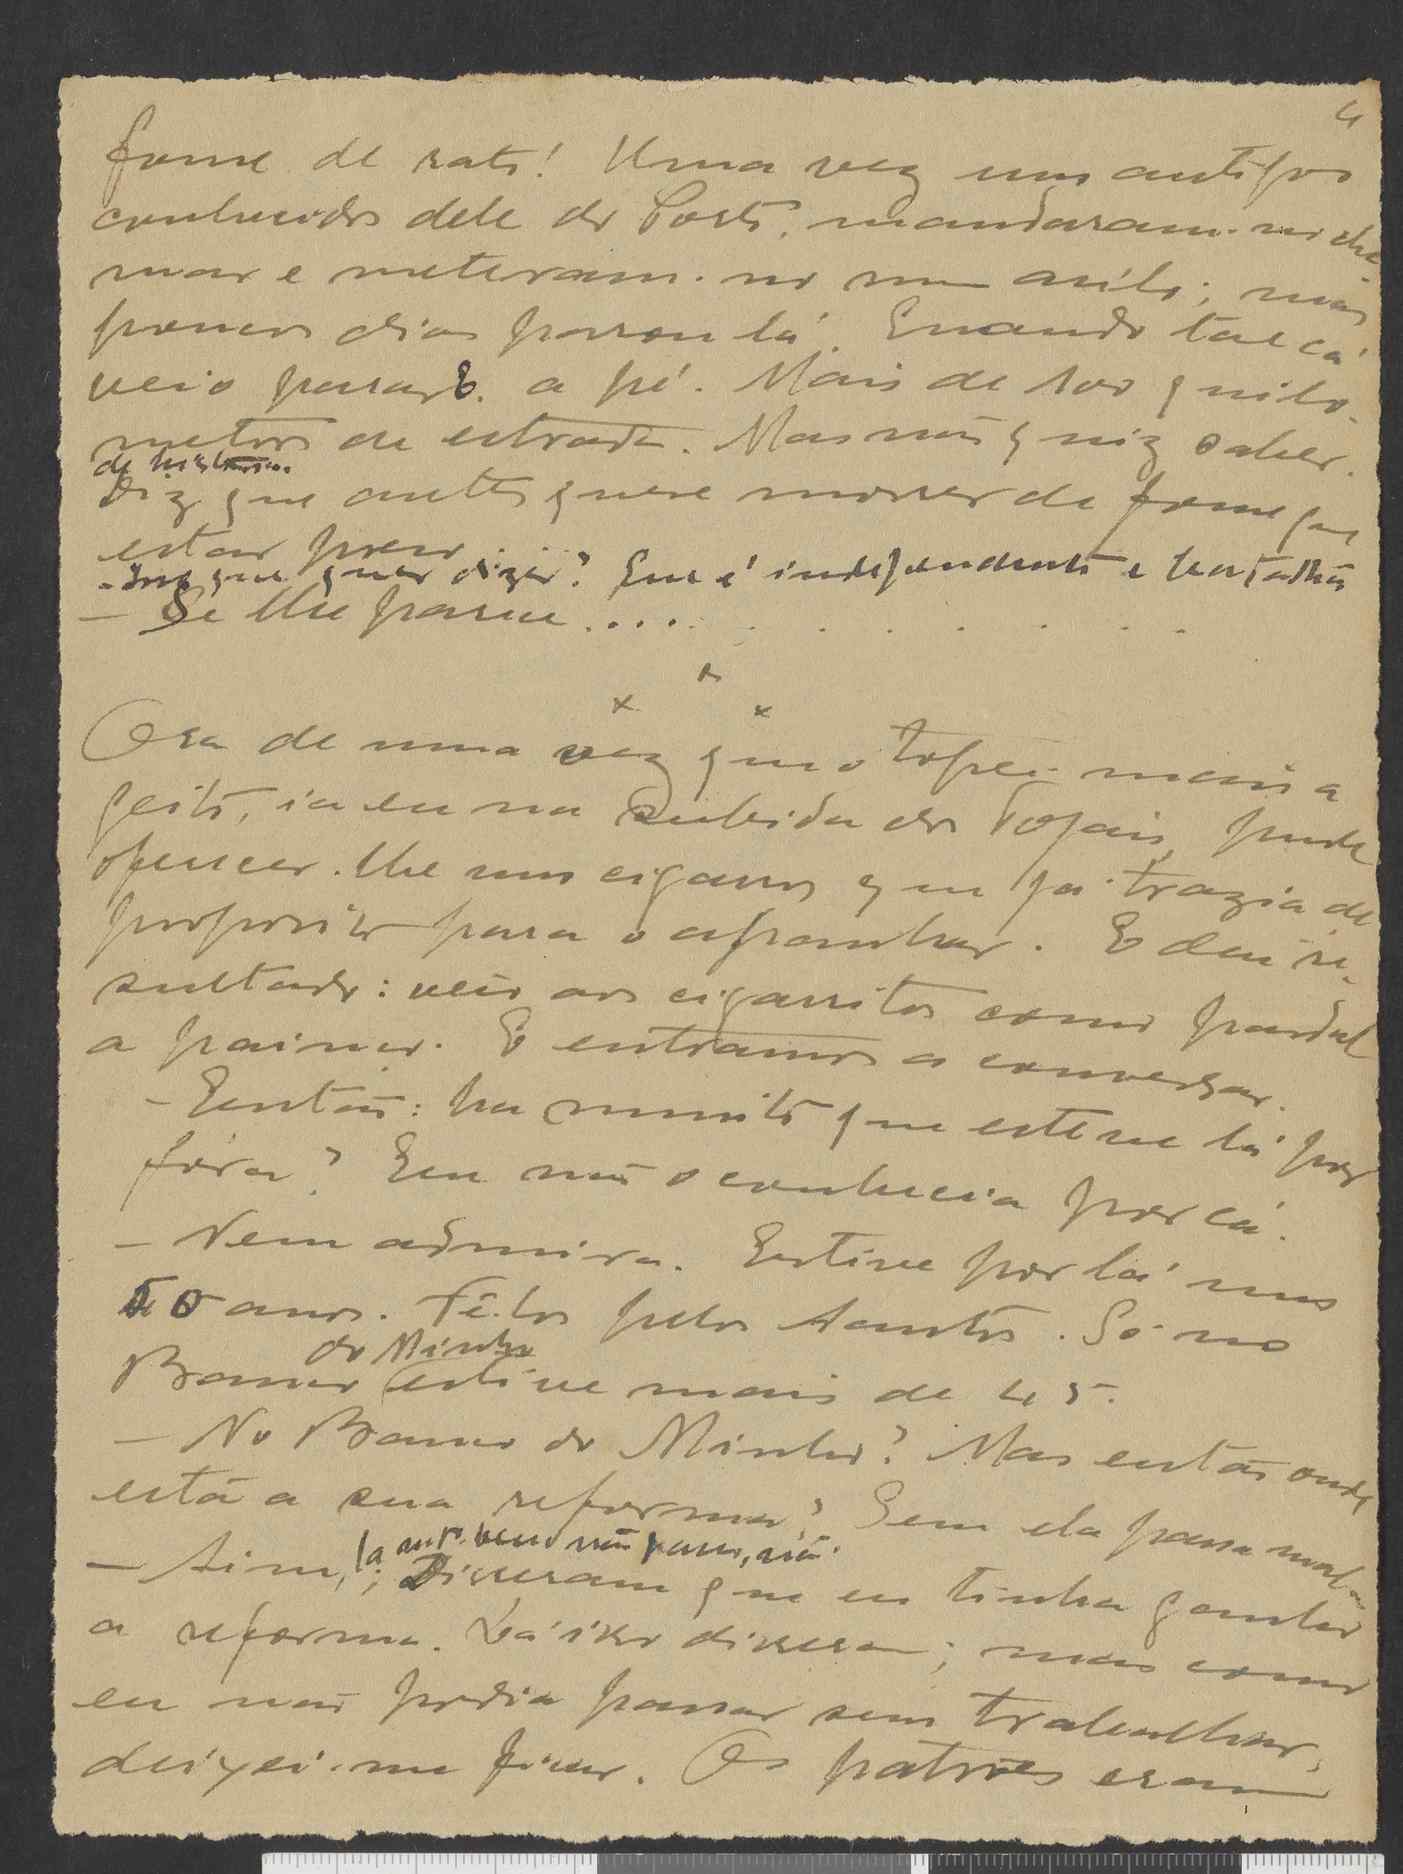 4
fome de rato! Uma vez uns antigos
conhecidos dele do Porto, mandaram-no cha-
mar e meteram-no num asilo; mas
poucos dias parou lá. Quando tal cá
veio parar a pé. Mais de 100 quiló-
metros de estrada. Mas não quiz saber.
de histórias.
Diz que antes quere morrer de fome que
estar preso.
- Isso que quer dizer? Que é independente e trabalhão
- Se lhe parece.... . . . . . . .
x x x
Ora de uma vez que o topei mais a
geito, ia eu na subida do Topais, pude
oferecer-lhe uns cigarros que já trazia de
proposito para o apanhar. E deu re-
sultado: veio aos cigarritos como pardal
a painço. E entramos a conversar.
- Então: ha muito que esteve lá por
fóra? Eu não o conhecia por cá.
- Nem admira. Estive por lá uns
50 anos. Fi-los pelos Santos. Só no
do Minho
Banco estive mais de 45.
- No Banco do Minho? Mas então onde
está a sua reforma? Sem ela passa mal.
lá muito bem não passo, não.
- Sim,; Disseram que eu tinha ganho
a reforma. Lá isso disseram; mas como
eu não podia passar sem trabalhar,
deixei-me ficar. Os patrões eram